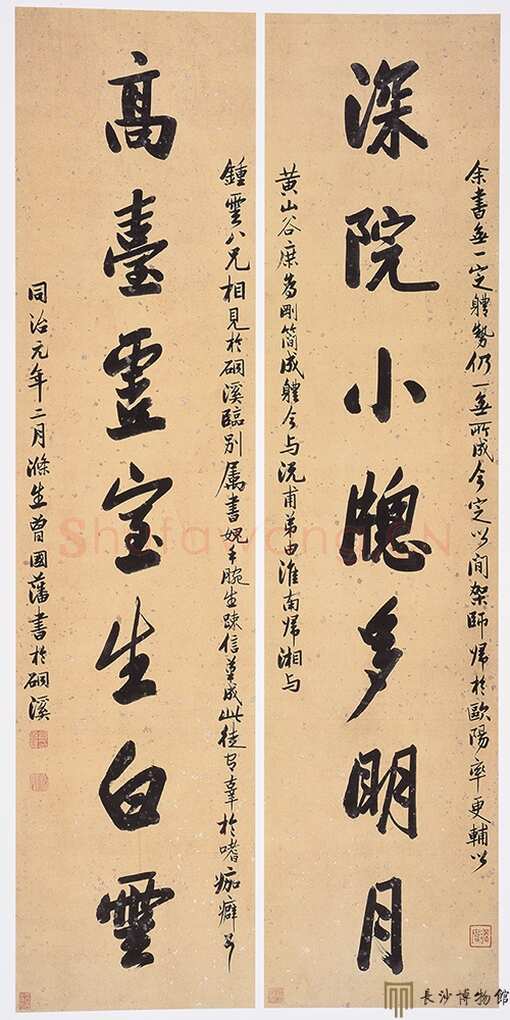 余書無一定體勢仍一無所成今定以间架師歸於歐陽率更輔以
深院小牕多明月
黄山谷庶為剛簡成體今与沅甫弟由淮南歸湘与
鍾雲八兄相見於碙溪臨別属書媿手腕生踈信草成此徒有辜於嗜痂癖耳
高臺靈室生白雲
同治元年二月滌生曾國藩書於碙溪
Shufawang.CN
長沙博物館